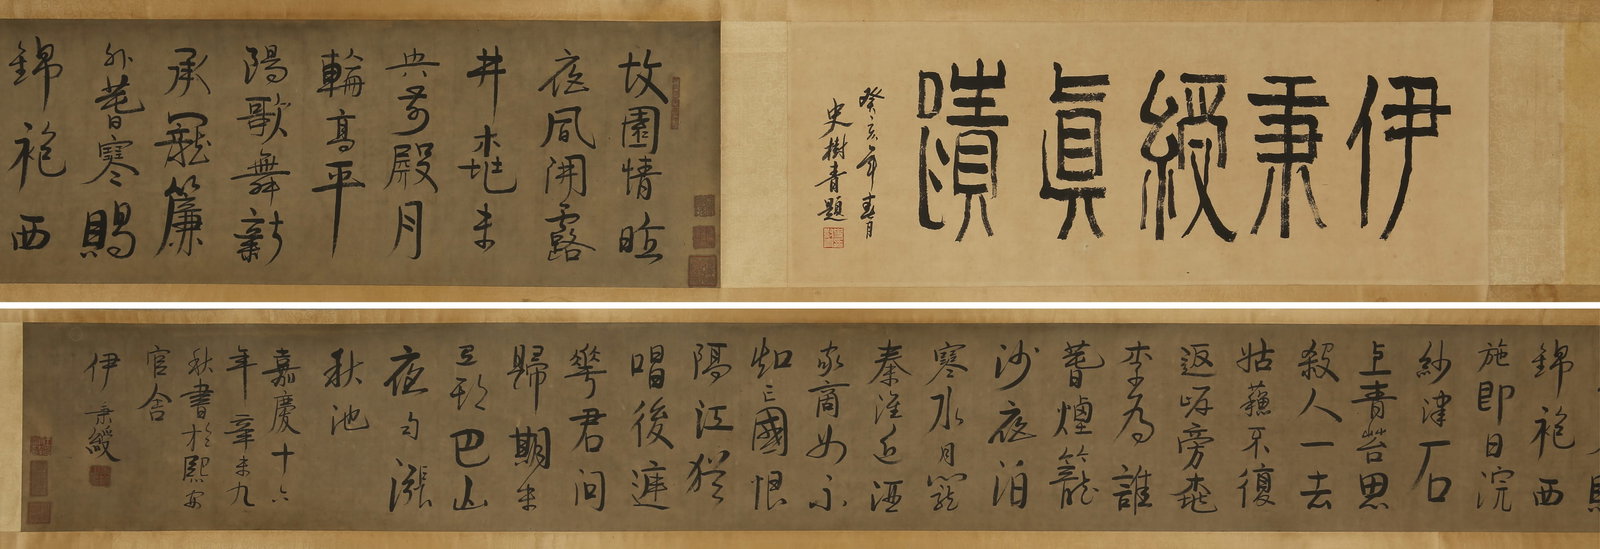 伊秉綬眞蹟
癸亥年春月
史樹青題
故園情昨
夜風開露
井桃未
央前殿月
輪高平
陽歌舞新
承寵簾
外春寒賜
錦袍西
錦袍西
施即日浣
紗津石
上青苔思
殺人一去
姑蘇不復
返岸旁桃
李為誰
春煙籠
沙夜泊
寒水月籠
秦淮近酒
家商女不
知亡國恨
隔江猶
唱後庭
華君問
歸期未
有期巴山
夜雨漲
秋池
嘉慶十六
年辛未九
秋書於熙安
官舍
伊秉綬